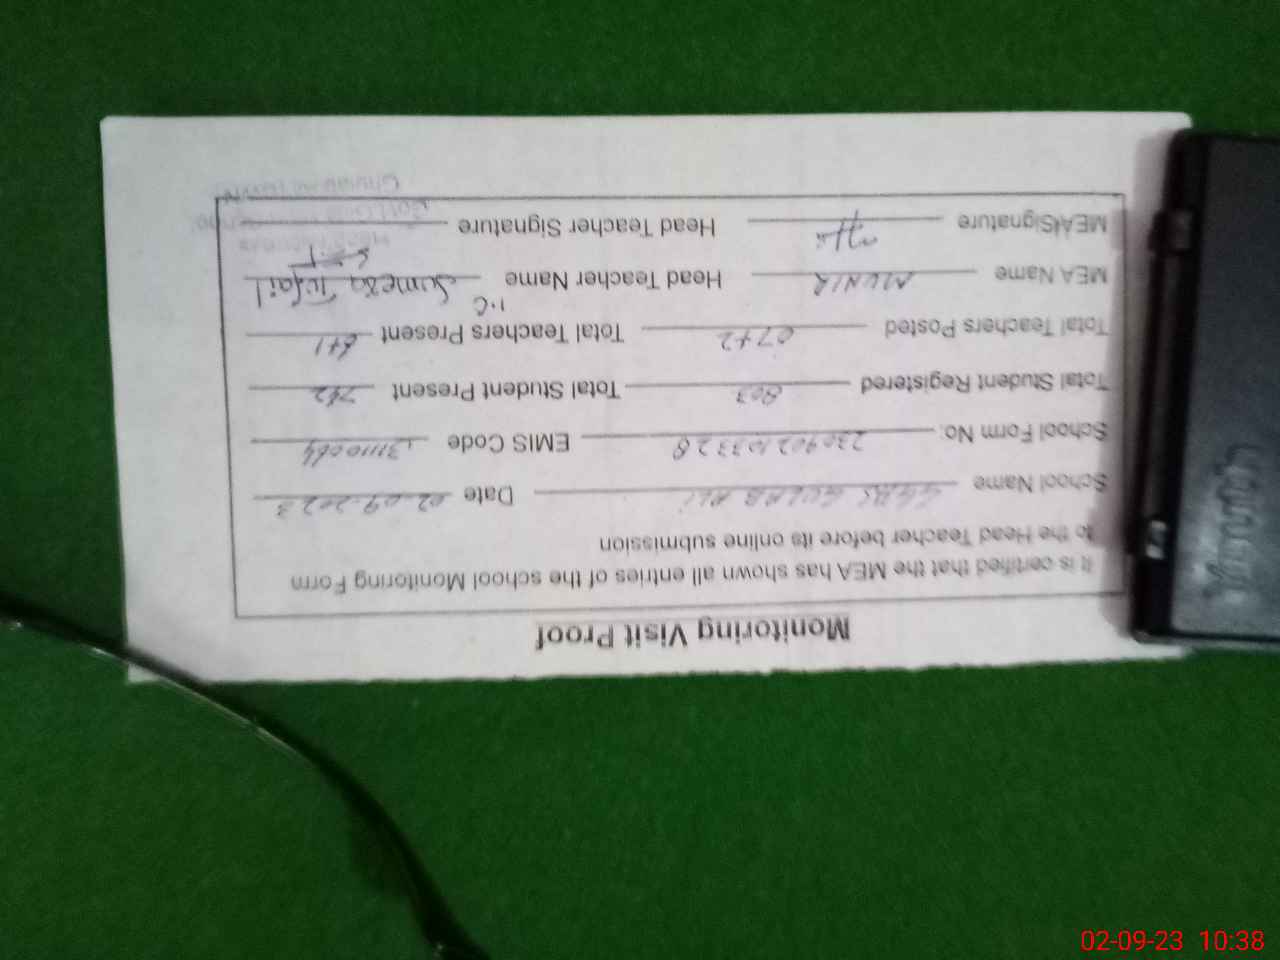 Monitoring Visit Proof
It is certified that the MEA has shown all entries of the school Monitoring Form
to the Head Teacher before its online submission
School Name GGHS GULAB ALI Date 02-09-2023
School Form No. 230902103328 EMIS Code
Total Student Registered 803 Total Student Present 762
Total Teachers Posted 07+2 Total Teachers Present 6+1
MEA Name MUNIR Head Teacher Name Sumera Tufail
I.C
MEA Signature Head Teacher Signature
02-09-23 10:38